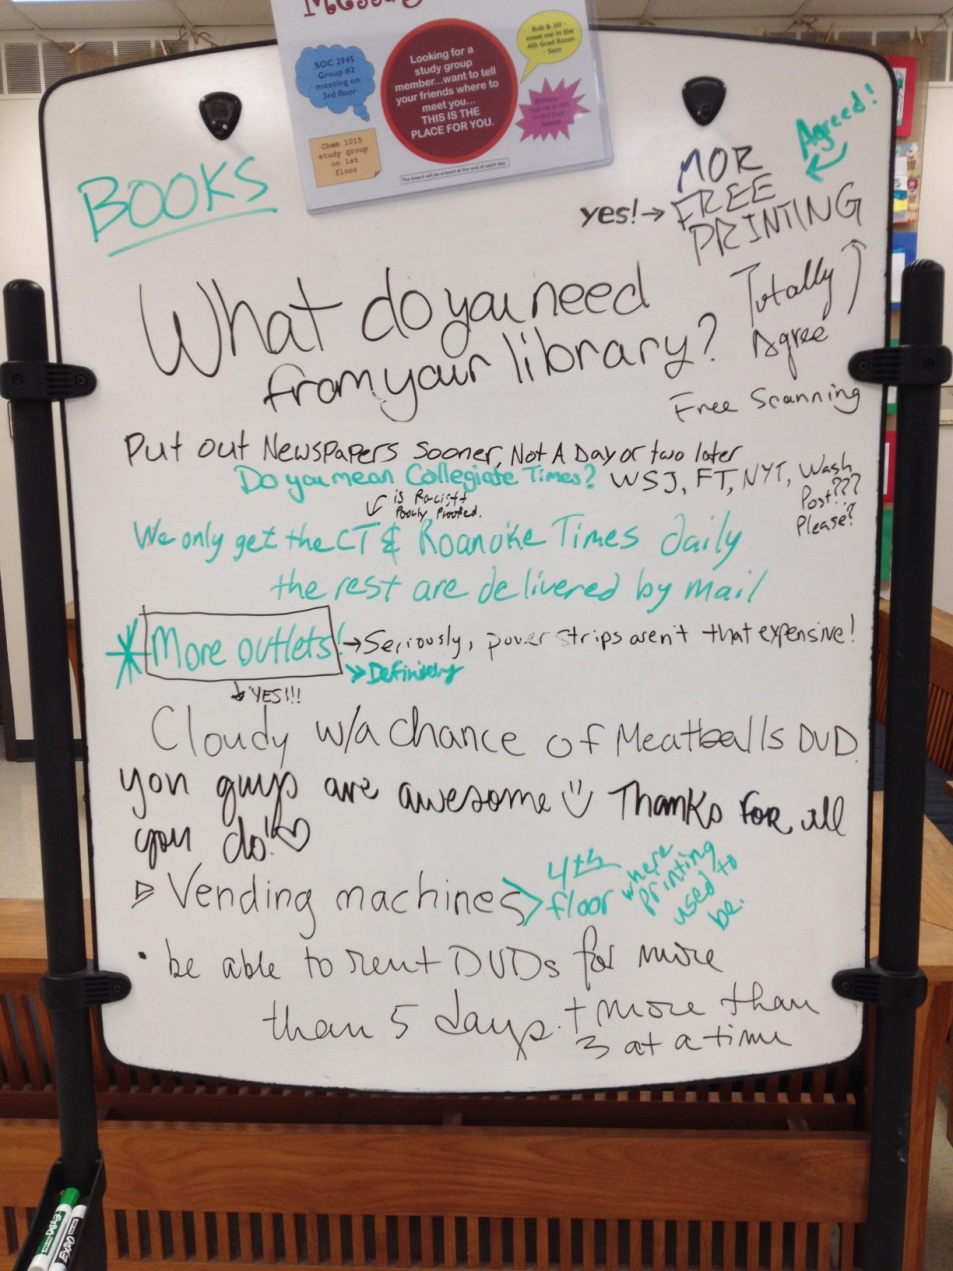 SOC 2945
Group #2
meeting on
3rd floor
Looking for a
study group
member...want to tell
your friends where to
meet you...
THIS IS THE
PLACE FOR YOU.
Rob & Jill -
meet me in the
4th Grad Room
- Sam
Chem 1015
study group
on 1st
floor
The board will be erased at the end of each day.
BOOKS
Agreed!
MOR
yes!→ FREE
PRINTING
Totally
Agree
What do you need
from your library?
Free Scanning
Put out Newspapers Sooner, Not A Day or two later
Do you mean Collegiate Times? WSJ, FT, NYT, Wash
Post???
Please?
is Racist+
Poorly Proofed.
We only get the CT & Roanoke Times daily
the rest are delivered by mail
More outlets! →Seriously, power strips aren't that expensive!
Definitely
YES!!!
Cloudy w/a chance of Meatballs DVD
you guys are awesome Thanks for all
you do!
Vending machines 4th
floor where
printing
used to
be.
• be able to rent DVDs for more
than 5 days. + more than
3 at a time
EXPO
EXPO